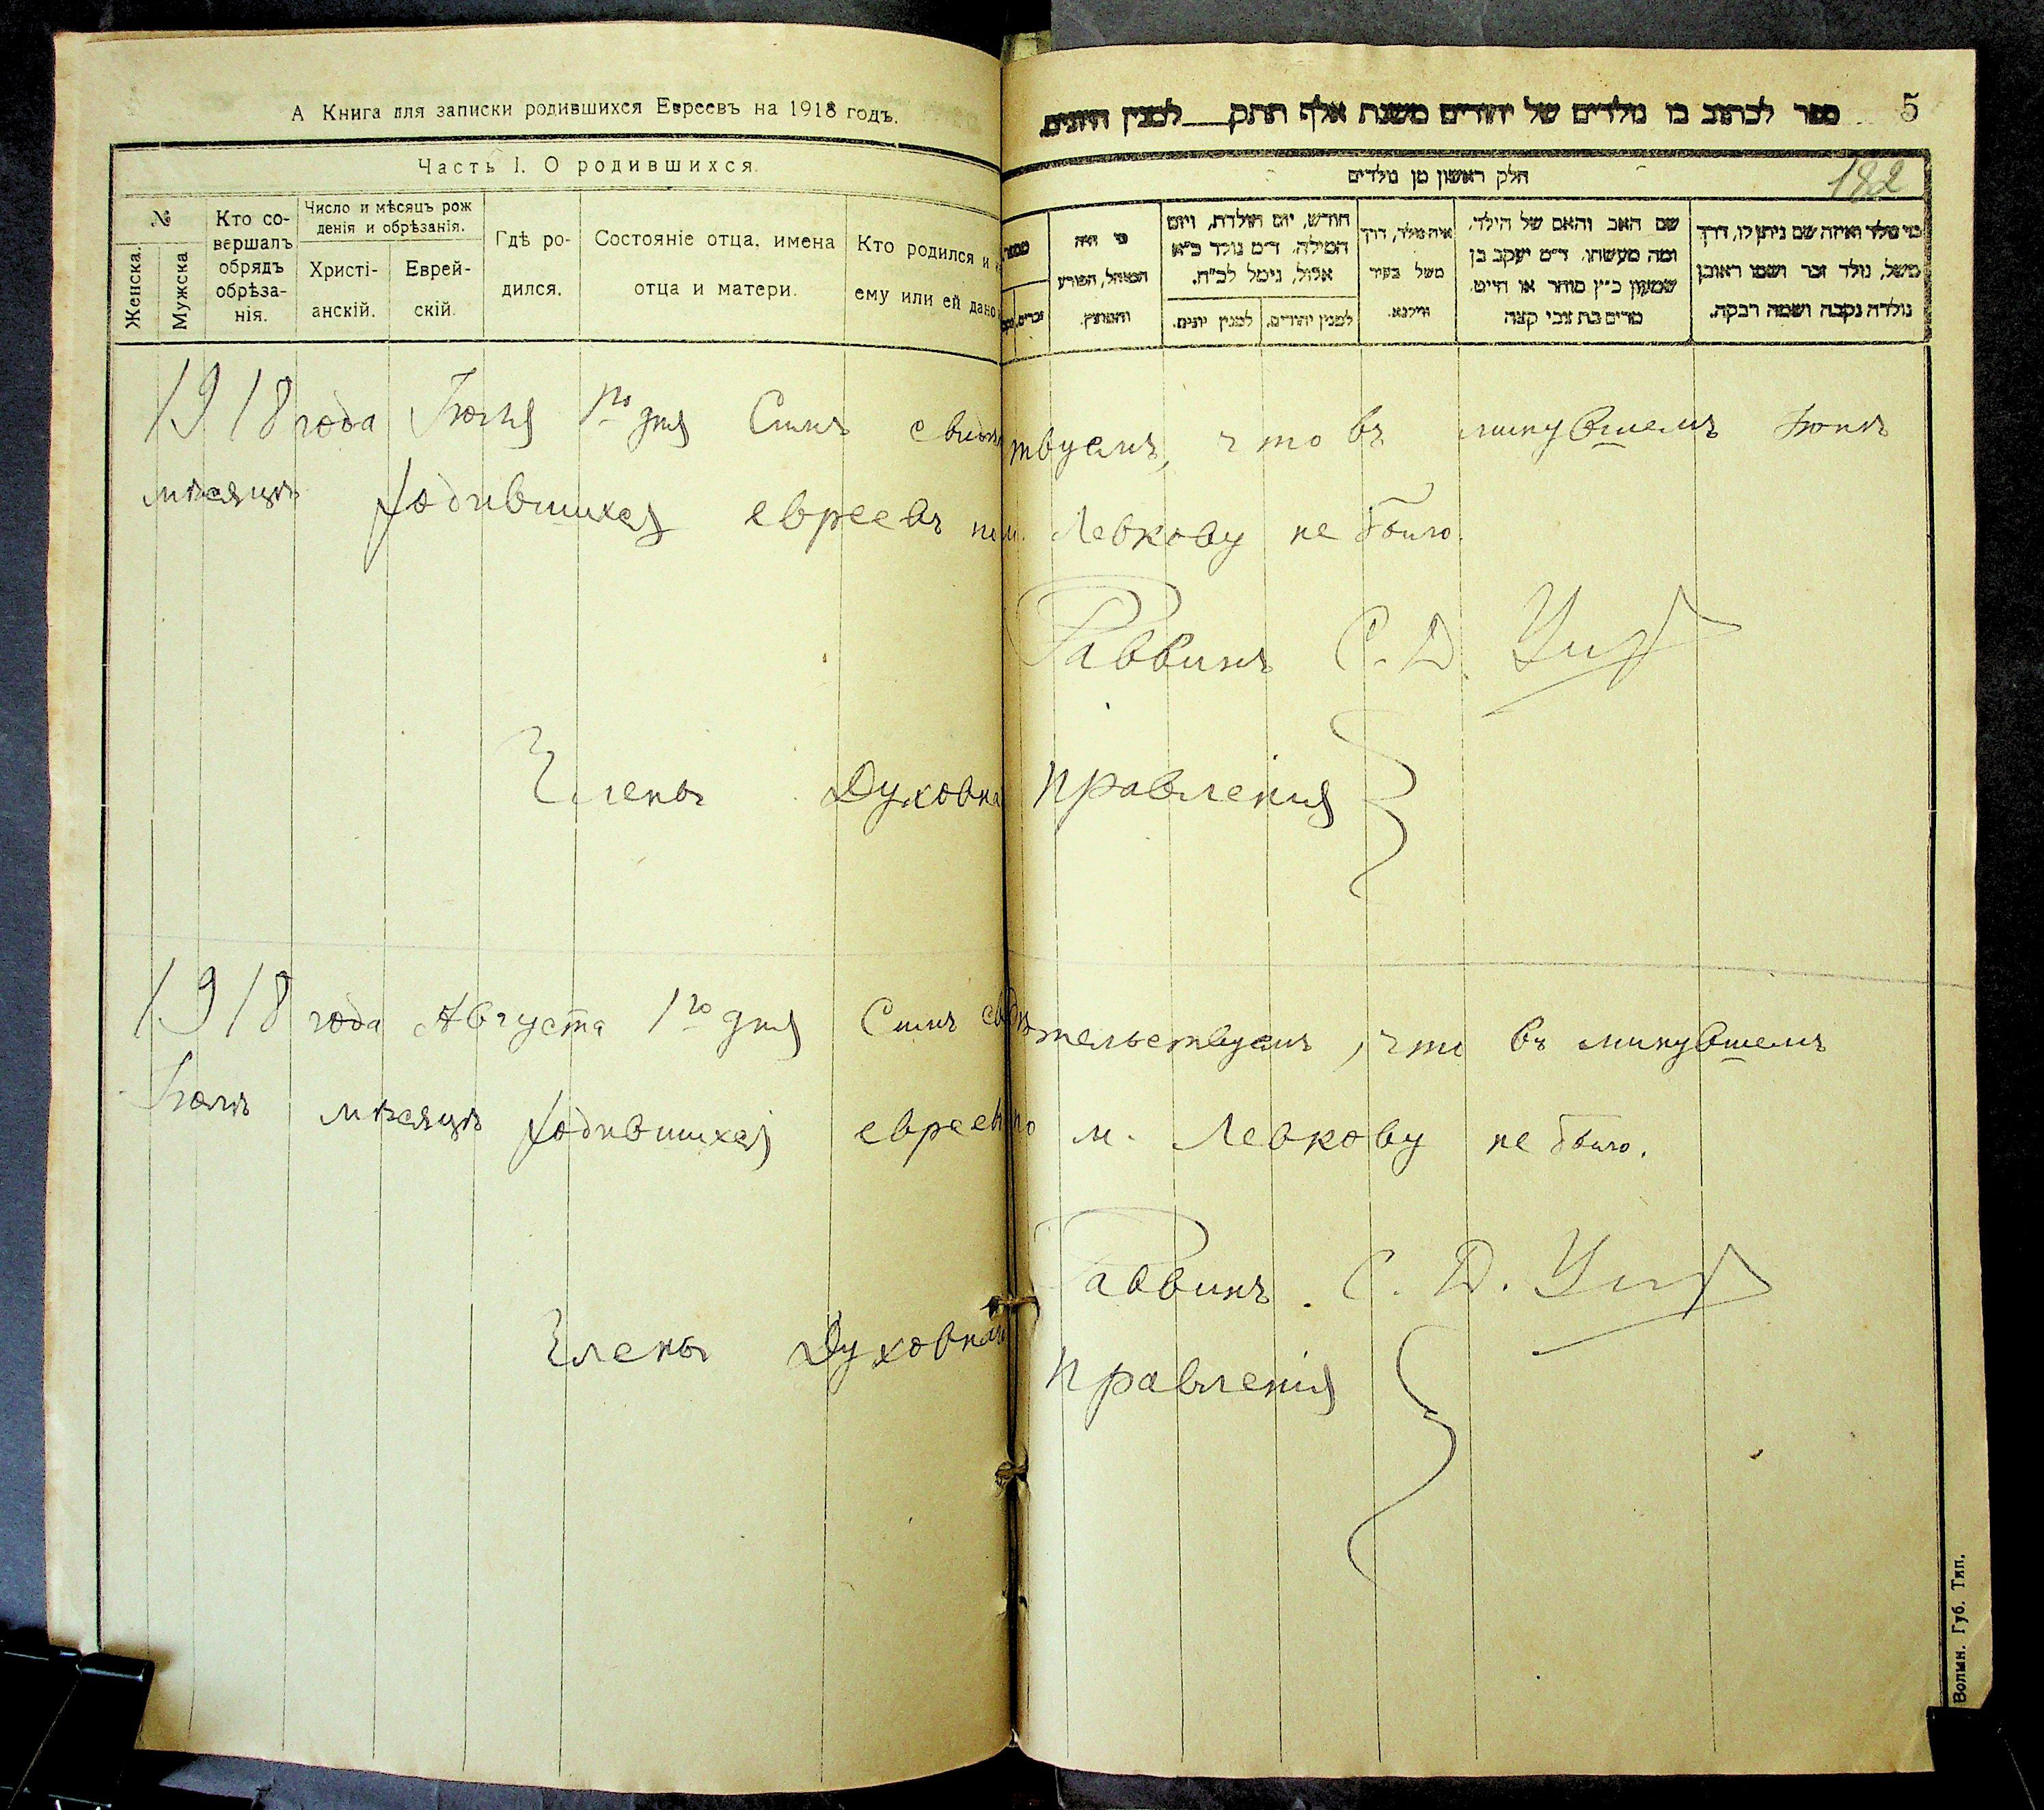 А Книга для записки родившихся Евреевъ на 1918 годъ.
Часть I. О родившихся.
№
Женска.
Мужска
Кто со-
вершалъ
обрядъ
обрѣза-
нія.
Число и мѣсяцъ рож
денія и обрѣзанія.
Христі-
анскій.
Еврей-
скій.
Гдѣ ро-
дился.
Состояніе отца, имена
отца и матери.
Кто родился и
ему или ей дано
ספר לכתוב בו נולדים של יהודים משנת אלף תתק___למנין היונים
5
182
חלק ראשון מן נולדים
מי היה
המוהל, הפורע
והמוצץ.
חודש, יום הולדת, ויום
המילה. ד״מ נולד כ״א
אלול, נימל לכ״ח.
למנין יונים.
למנין יהודים.
איה נולד, דרך
משל בעיר
ווילנא.
שם האב והאם של הילד,
ומה מעשהו. ד״מ יעקב בן
שמעון כ״ץ סוחר או חייט.
מרים בת צבי קצה
מי נולד ואיזה שם ניתן לו, דרך
משל, נולד זכר ושמו ראובן
נולדה נקבה ושמה רבקה.
1918 года Іюля 1го дня Симъ свидѣтельствуемъ, что въ минувшемъ Іюнѣ
мѣсяцѣ родившихся евреевъ по м. Левкову не было.
Раввинъ С. Д.
Члены Духовнаго Правленія
1918 года Августа 1го дня Симъ свидѣтельствуемъ, что въ минувшемъ
Іюлѣ мѣсяцѣ родившихся евреевъ по м. Левкову не было.
Раввинъ С. Д.
Члены Духовнаго Правленія
Волын. Губ. Тип.